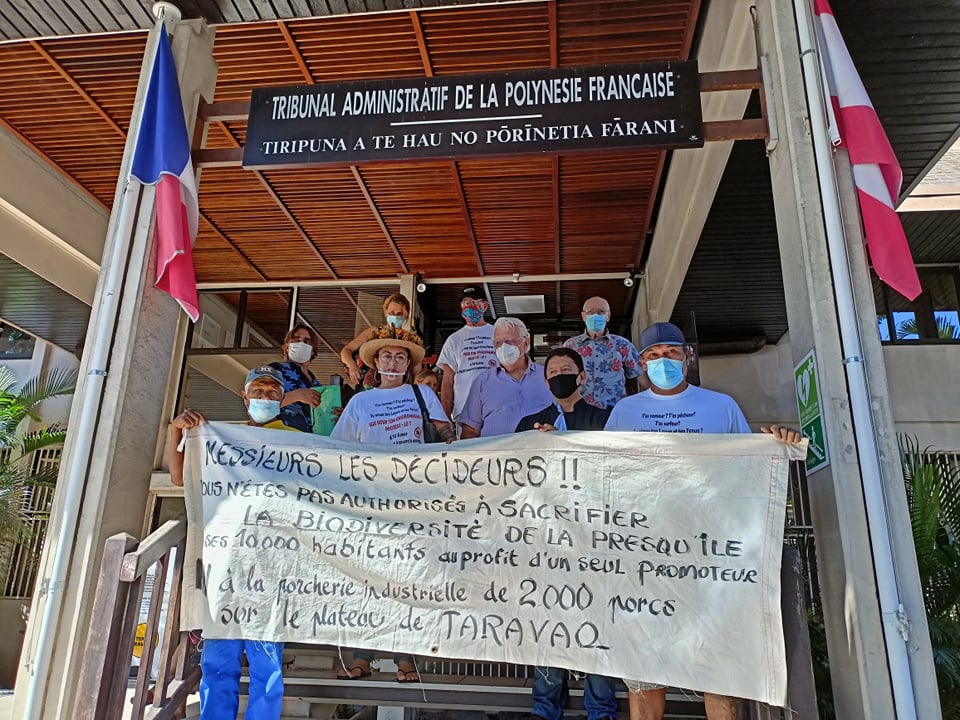 TRIBUNAL ADMINISTRATIF DE LA POLYNESIE FRANCAISE
TIRIPUNA A TE HAU NO PŌRĪNETIA FĀRANI
MESSIEURS LES DÉCIDEURS !!
OUS N'ÊTES PAS AUTHORISÉS À SACRIFIER
LA BIODIVERSITÉ DE LA PRESQU'ILE
SES 10.000 habitants au profit d'un seul PROMOTEUR
N à la porcherie industrielle de 2000 porcs
sur le plateau de TARAVAO